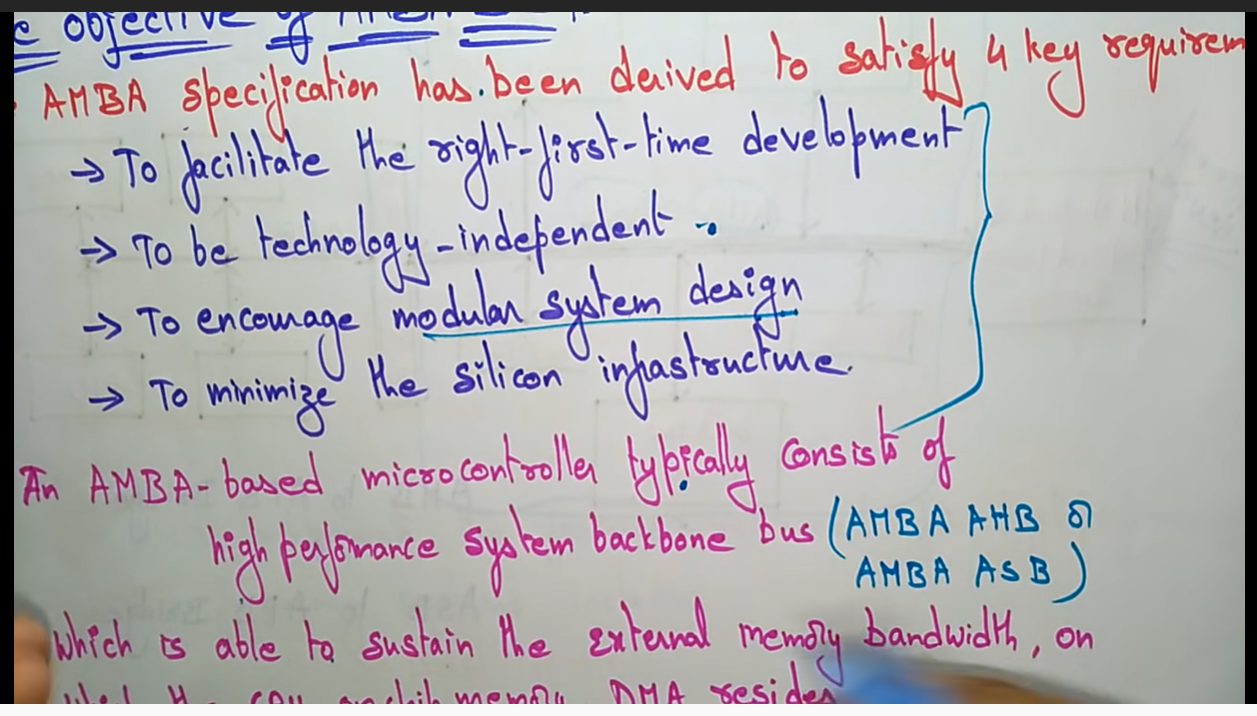 e objective of AMBA
AMBA specification has been derived to satisfy 4 key requirem
→ To facilitate the right-first-time development
→ To be technology-independent
→ To encourage modular system design
→ To minimize the silicon infrastructure.
An AMBA-based microcontroller typically consists of
high performance system backbone bus (AMBA AHB or
AMBA ASB)
which is able to sustain the external memory bandwidth, on
the CPU, onchip memory DMA resides